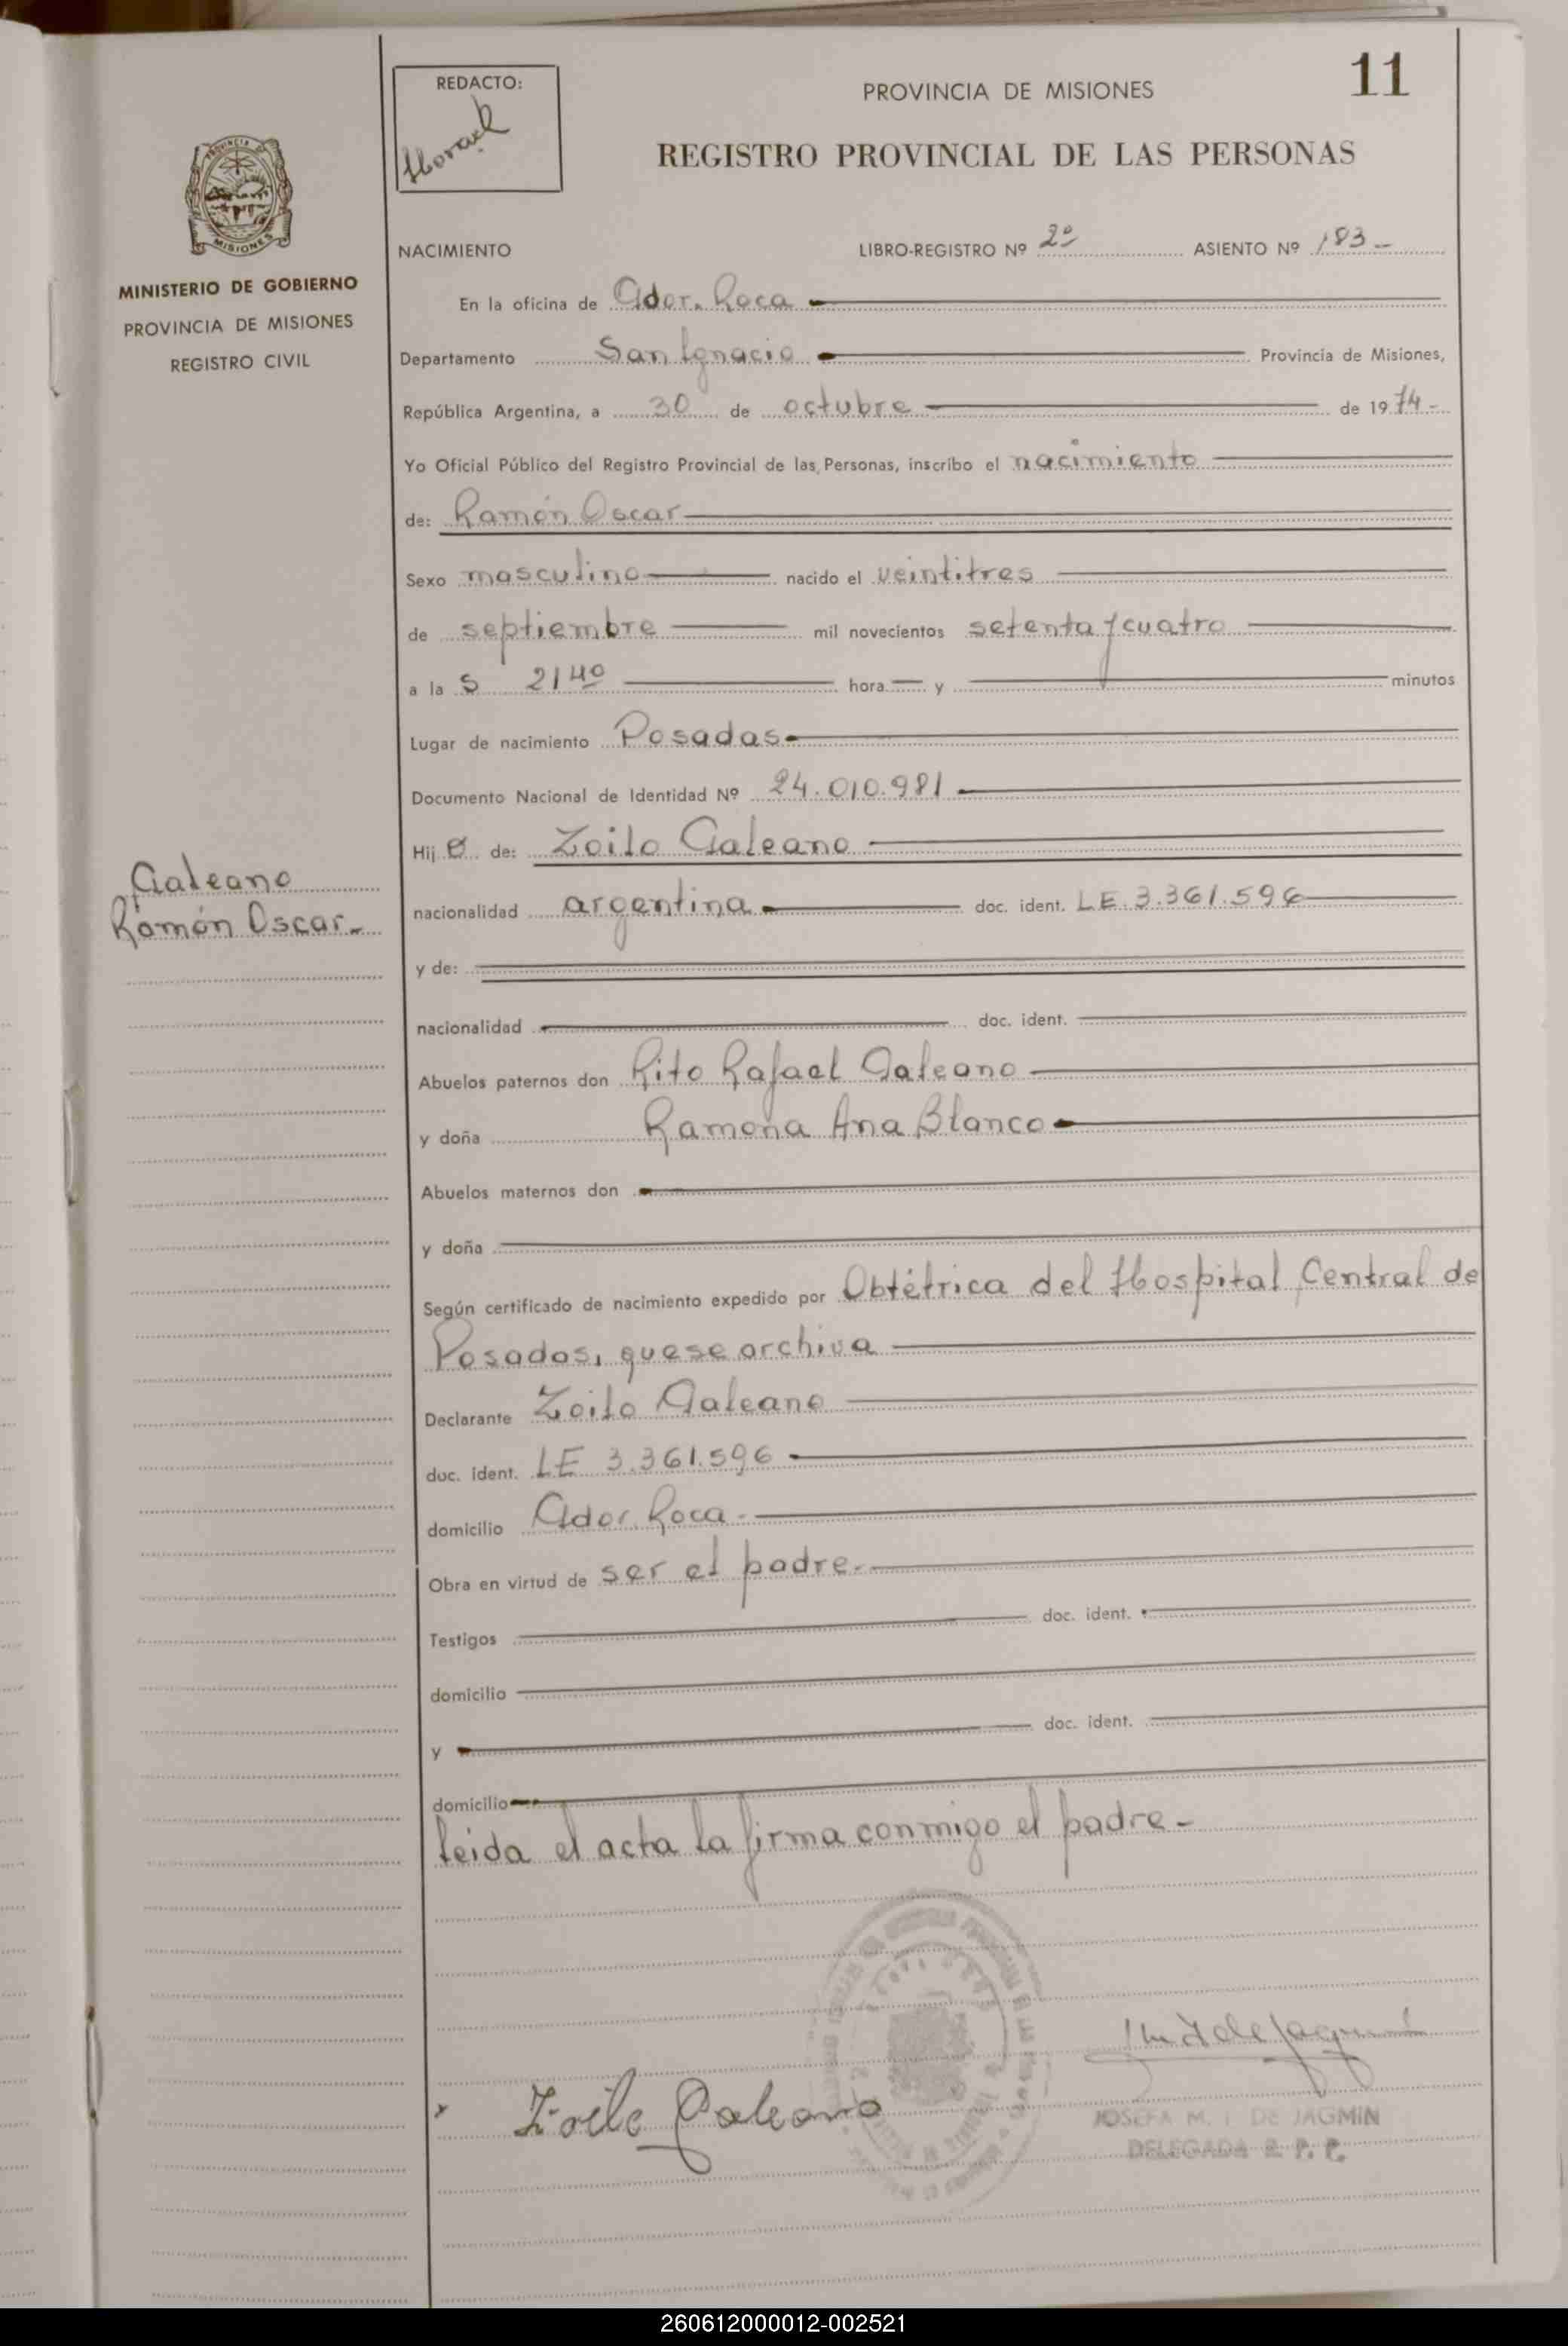 11
REDACTO:
PROVINCIA DE MISIONES
REGISTRO PROVINCIAL DE LAS PERSONAS
PROVINCIA DE
MISIONES
MINISTERIO DE GOBIERNO
PROVINCIA DE MISIONES
REGISTRO CIVIL
NACIMIENTO LIBRO-REGISTRO Nº 2º ASIENTO Nº 183-
En la oficina de Gdor. Roca
Departamento San Ignacio Provincia de Misiones,
República Argentina, a 30 de octubre de 1974-
Yo Oficial Público del Registro Provincial de las Personas, inscribo el nacimiento
de: Ramón Oscar
Sexo masculino nacido el veintitres
de septiembre mil novecientos setenta y cuatro
a la s 21 40 hora y minutos
Lugar de nacimiento Posadas
Documento Nacional de Identidad Nº 24.010.981
Hij o de: Zoilo Galeano
Galeano
Ramón Oscar-
nacionalidad argentina doc. ident. LE 3.361.596
y de:
nacionalidad doc. ident.
Abuelos paternos don Rito Rafael Galeano
y doña Ramona Ana Blanco
Abuelos maternos don
y doña
Según certificado de nacimiento expedido por Obtétrica del Hospital Central de
Posadas, que se archiva
Declarante Zoilo Galeano
doc. ident. LE 3.361.596
domicilio Gdor. Roca-
Obra en virtud de ser el padre-
Testigos doc. ident.
domicilio
y doc. ident.
domicilio
leida el acta la firma conmigo el padre-
x Zoilo Galeano
JOSEFA M. T. DE JAGMIN
DELEGADA R. P. P.
260612000012-002521